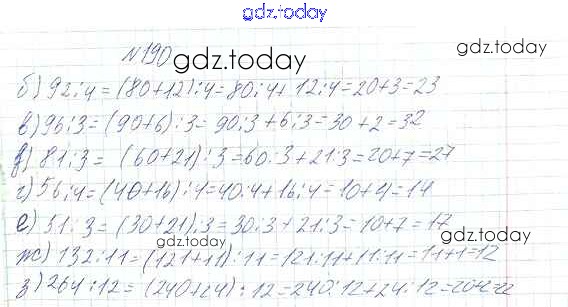 gdz.today
№190 gdz.today gdz.today
б) 92:4=(80+12):4=80:4+12:4=20+3=23
в) 96:3=(90+6):3=90:3+6:3=30+2=32
д) 81:3=(60+21):3=60:3+21:3=20+7=27
г) 56:4=(40+16):4=40:4+16:4=10+4=14
е) 51:3=(30+21):3=30:3+21:3=10+7=17
gdz.today gdz.today
ж) 132:11=(121+11):11=121:11+11:11=11+1=12
з) 264:12=(240+24):12=240:12+24:12=20+2=22